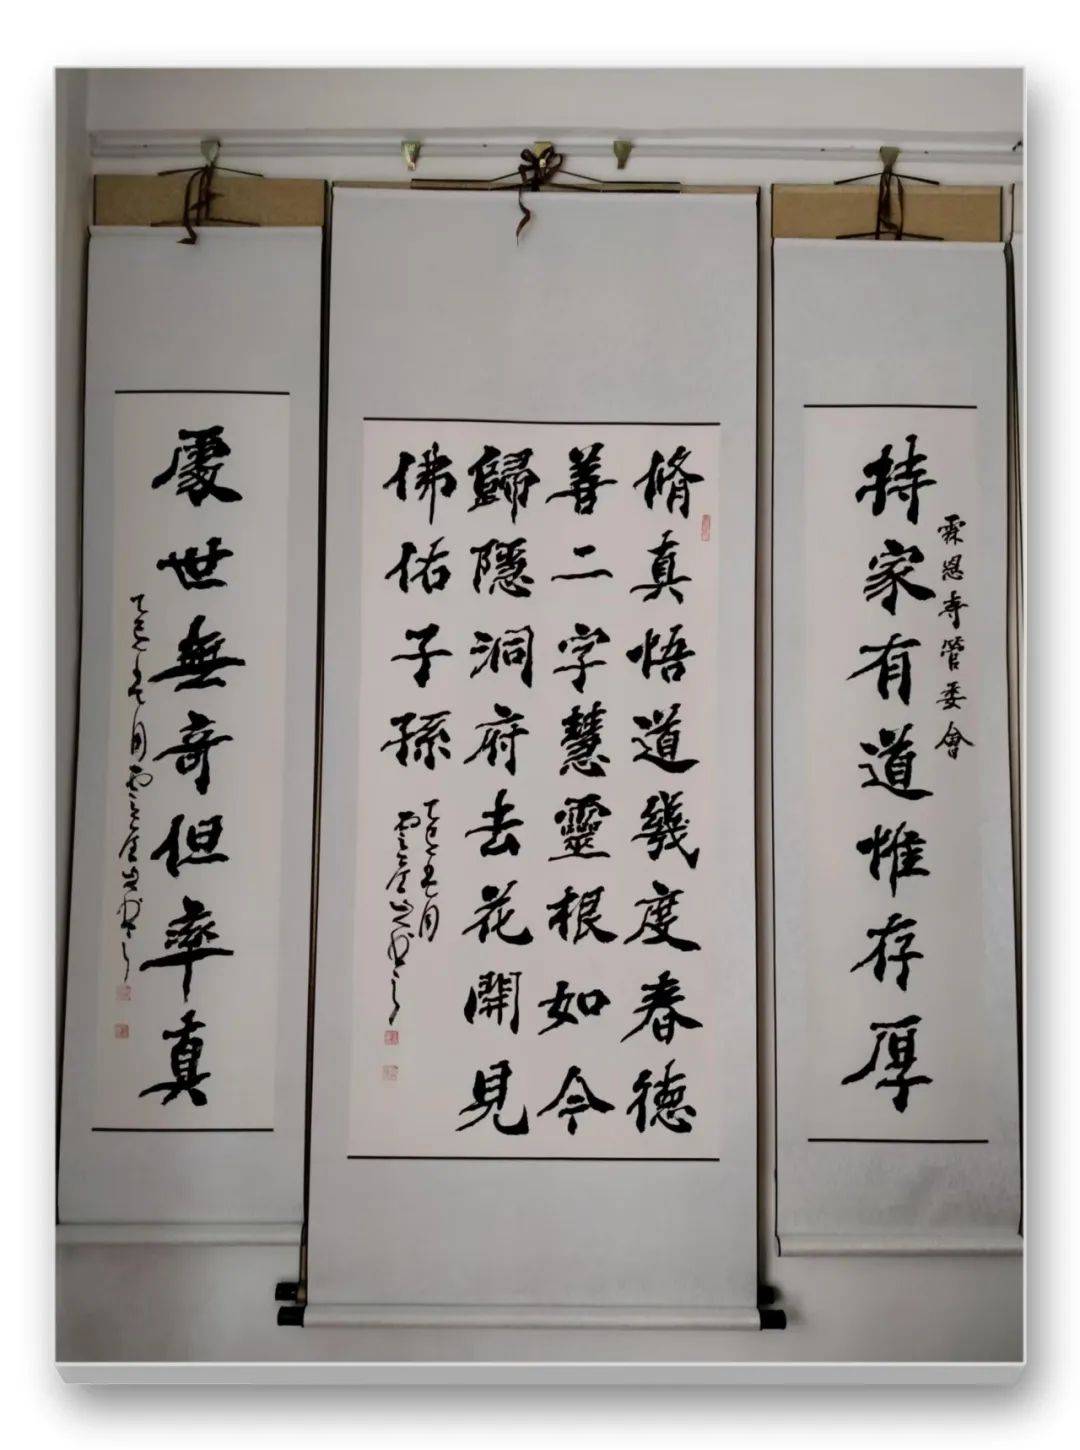 持家有道惟存厚
霖恩寺管委會
脩真悟道幾度春德
善二字慧靈根如今
歸隱洞府去花開見
佛佑子孫
乙巳五月
處世無奇但率真
乙巳五月